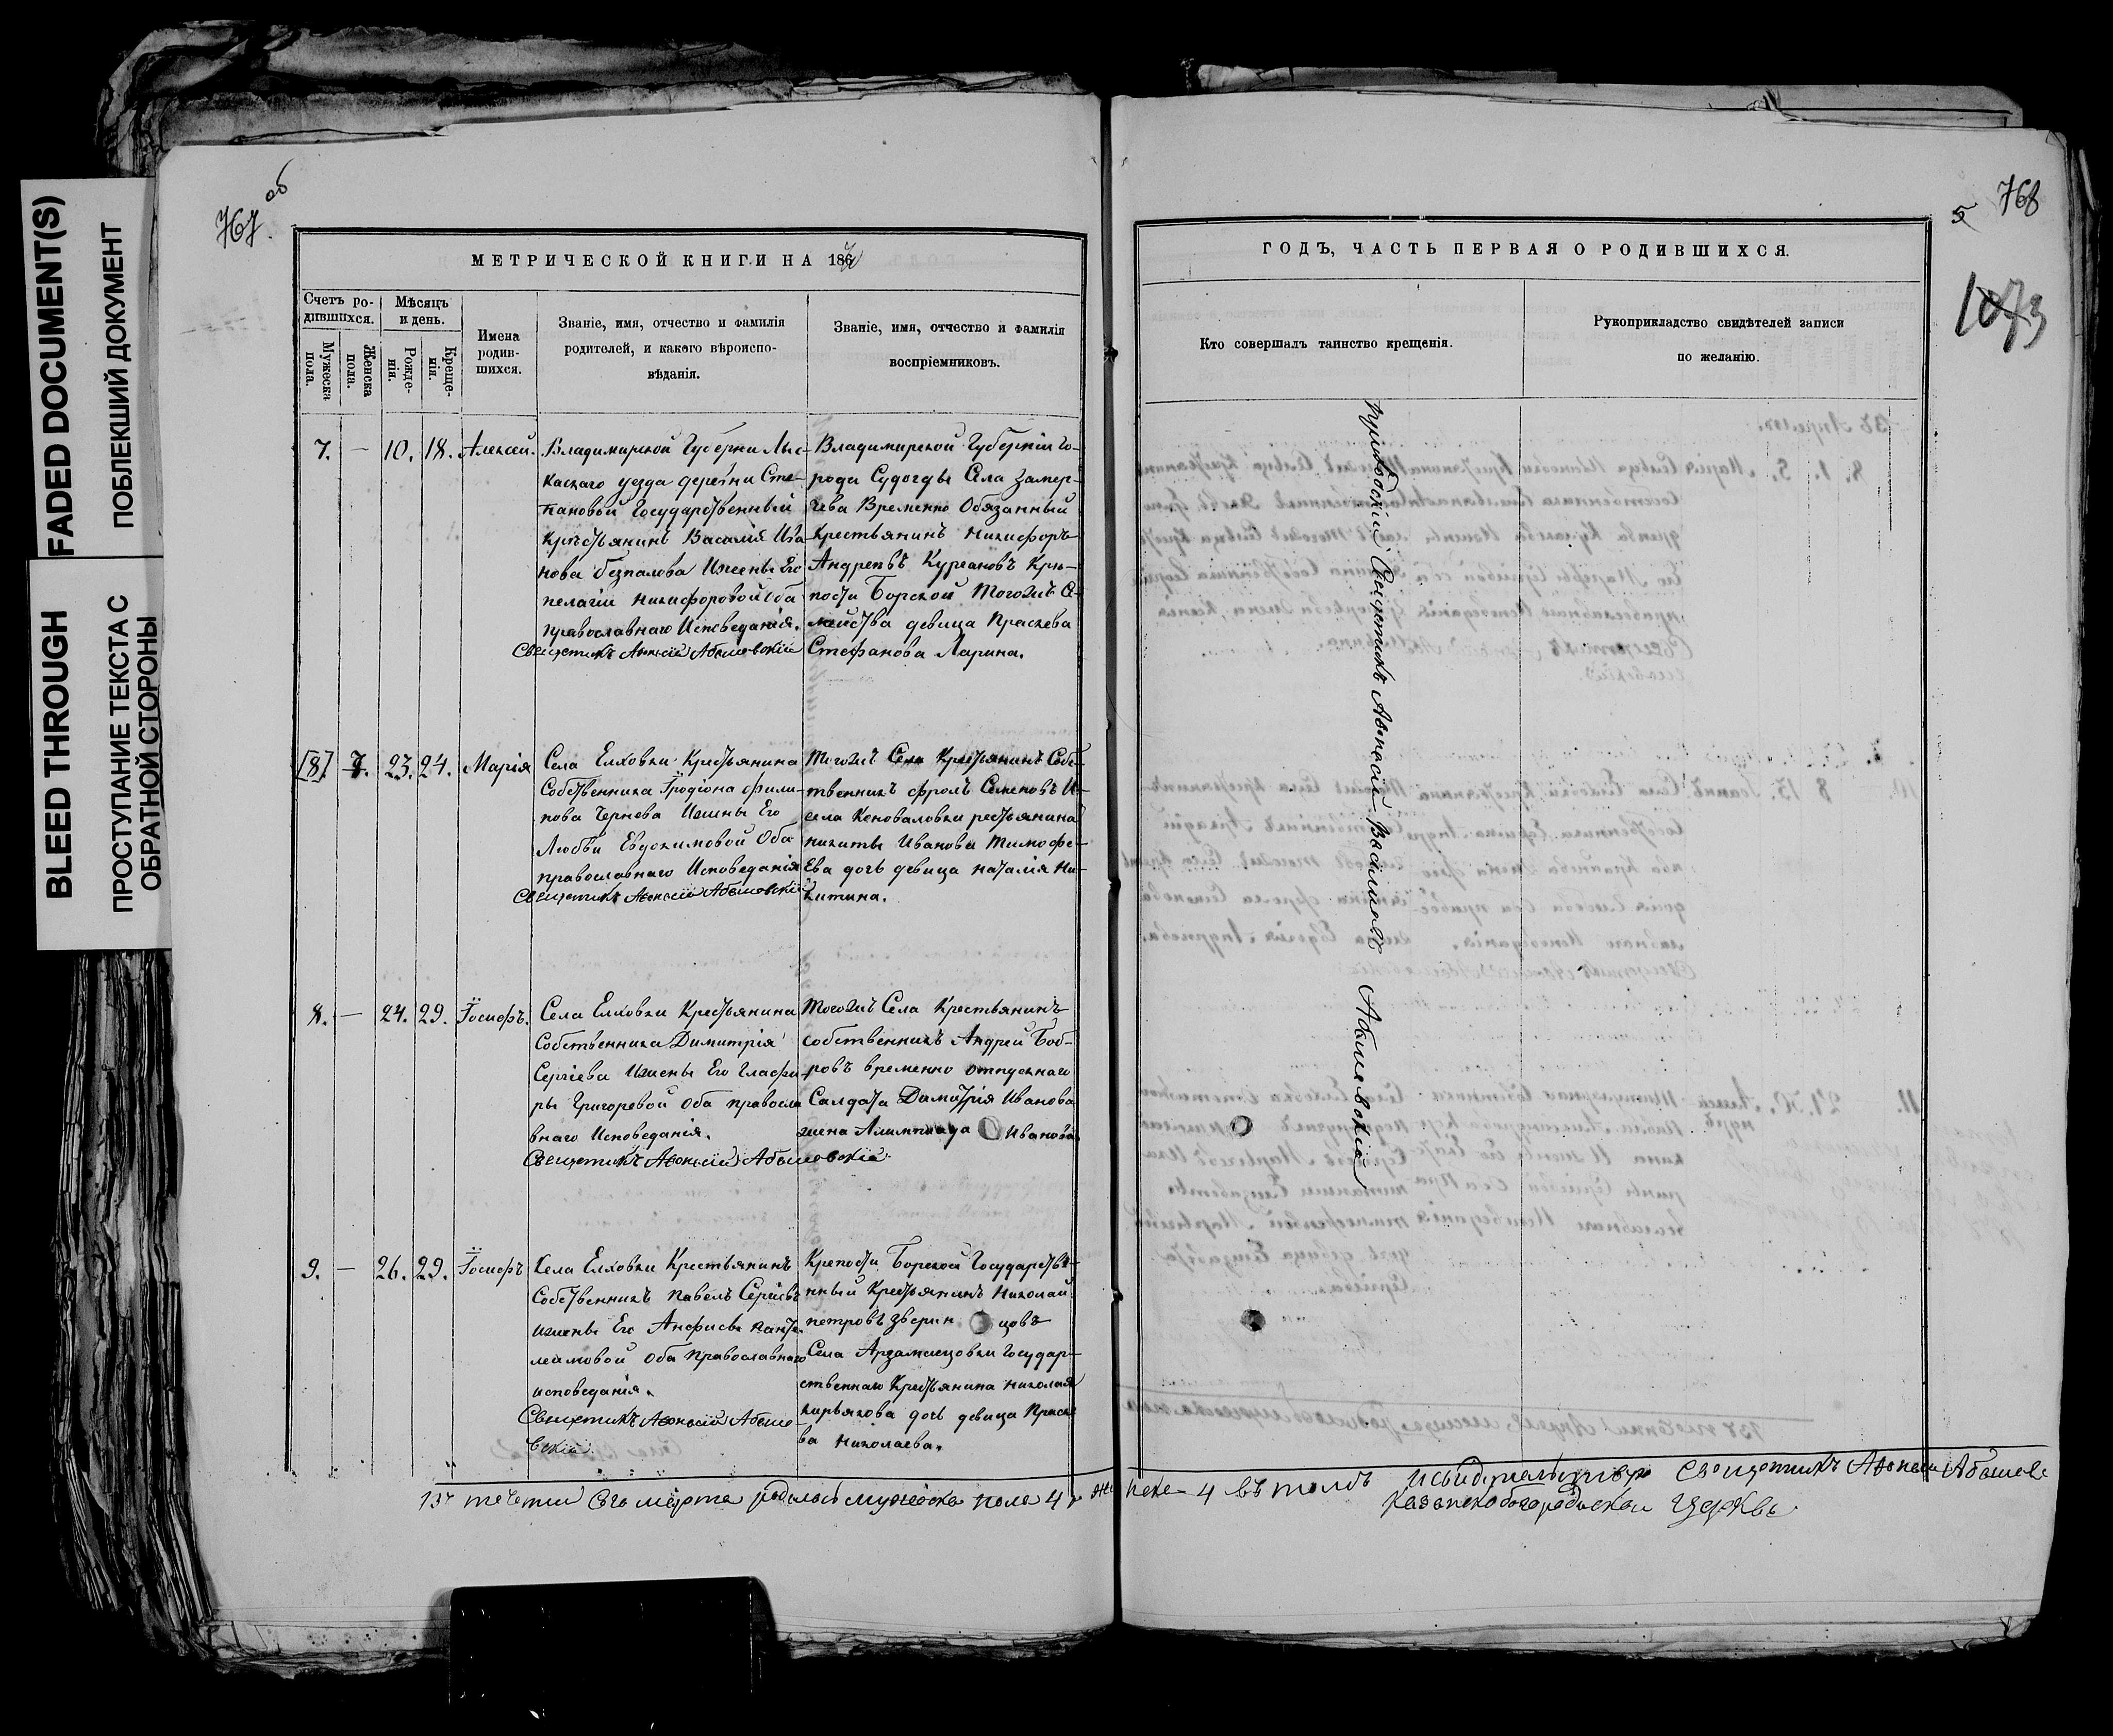 FADED DOCUMENT(S)
ПОБЛЕКШИЙ ДОКУМЕНТ
BLEED THROUGH
ПРОСТУПАНИЕ ТЕКСТА С
ОБРАТНОЙ СТОРОНЫ
767 об
МЕТРИЧЕСКОЙ КНИГИ НА 186
Счетъ ро-
дившихся.
Мужеска
пола.
Женска
пола.
Мѣсяцъ
и день.
Рожде-
нія.
Креще-
нія.
Имена
родив-
шихся.
Званіе, имя, отчество и фамилія
родителей, и какого вѣроиспо-
вѣданія.
Званіе, имя, отчество и фамилія
воспріемниковъ.
7. — 10. 18. Алексѣй.
Владимирской Губерни
каскаго уезда деревни Сте-
пановой Государственный
Крестьянинъ Василій Ива
нова безпалова Ижены Его
пелагіи Никифоровой оба
православнаго Исповеданія.
Священникъ Афонасій Абышевскій
Владимирской Губерніи Го-
рода Судогды Села Замер-
чева Временно Обязанный
Крестьянинъ Никифоръ
Андреевъ Кургановъ Крѣ-
пости Борской Тогожъ Се-
мейства девица Праскева
Стефанова Ларина.
[8] 7. 23. 24. Марія
Села Елховки Крестьянина
Собственника Їродіона фили-
пова Чернова Ижены Его
Любви Евдокимовой Оба
православнаго Исповеданія
Священникъ Афонасій Абышевскій
Тогожъ Села Крестьянинъ Собс-
твенникъ фролъ Семеновъ И-
села Коноваловки рестьянина
никиты Иванова Тимофе-
Ева дочь девица наталія Ни-
китина.
8. — 24. 29. Їосифъ.
Села Елховки Крестьянина
Собственника Димитрія
Сергіева Ижены Его Глафи
ры Григоревой Оба правосла
внаго Исповеданія.
Священникъ Афонасій Абышевскій
Тогожъ Села Крестьянинъ
собственникъ Андрей Боб-
ровъ временно отпускнаго
Салдата Димитрія Иванова
жена Алимпиада Иванова
9. — 26. 29. Їосифъ
Села Елховки Крестьянинъ
Собственникъ Павелъ Сергіевъ
ижены Его Анфисы Панте
леимовой Оба Православнаго
исповеданія.
Священникъ Афонасій Абыше-
вскій
Крепости Борской Государстве-
нный Крестьянинъ Николай
петровъ Зверин цовъ
Села Арзамасцовки Государ-
ственнаго Крестьянина Николая
Кирьякова дочь девица Праске
ва Николаева.
въ течении сего марта родилось мужеска пола 4
5 768
1073
ГОДЪ, ЧАСТЬ ПЕРВАЯ О РОДИВШИХСЯ.
Кто совершалъ таинство крещенія.
Рукоприкладство свидѣтелей записи
по желанію.
приходскій Священникъ Афонасій Васильевъ Абышевскій
4 въ томъ и свидетельствую Священникъ Афонасій Абышевс
Казанскобогородиской Церквы